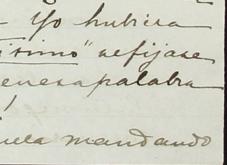 Yo hubiera
isimo" se fijase
en esa palabra
!
uela mandando